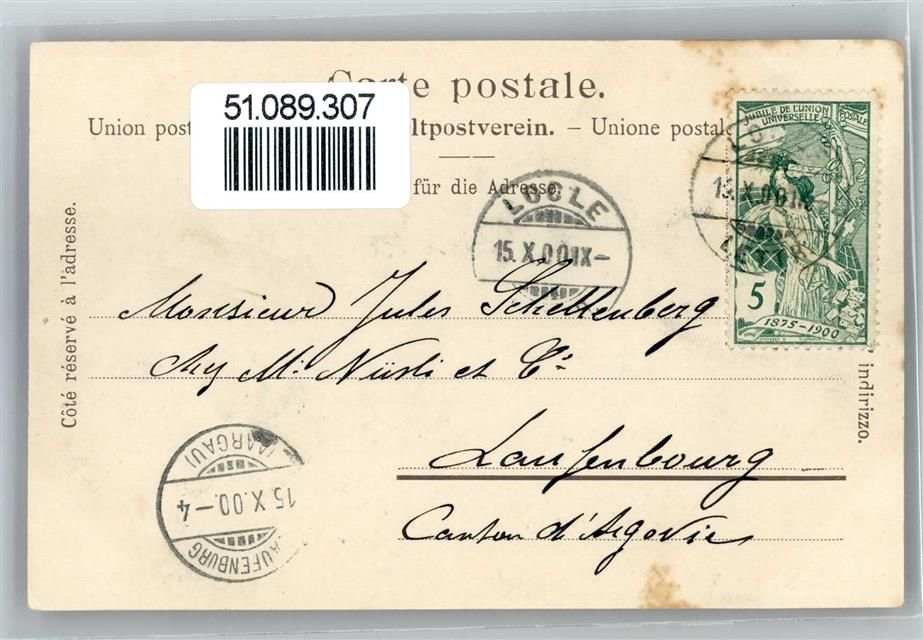 Carte postale.
51.089.307
Union post ltpostverein. – Unione postal
für die Adresse.
JUBILÉ DE L'UNION POSTALE
UNIVERSELLE
5
1875–1900
LOCLE
15.X.00.IX–
15.X.00.IX
Côté réservé à l'adresse.
indirizzo.
Monsieur Jules Schellenberg
chez Mr. Nüsli et Cie
Laufenbourg
Canton d'Argovie
LAUFENBURG
15.X.00.–4
(AARGAU)